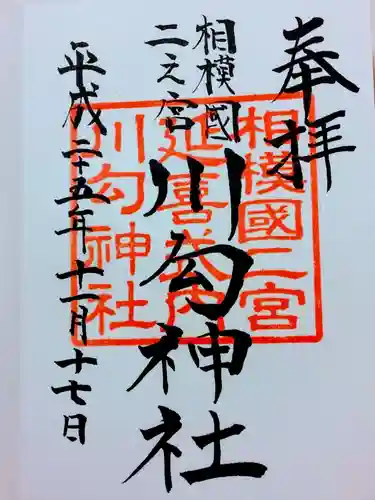 奉拝
相模國
二之宮
川勾神社
平成二十五年十一月十七日
相模國二宮
延喜式内
川勾神社